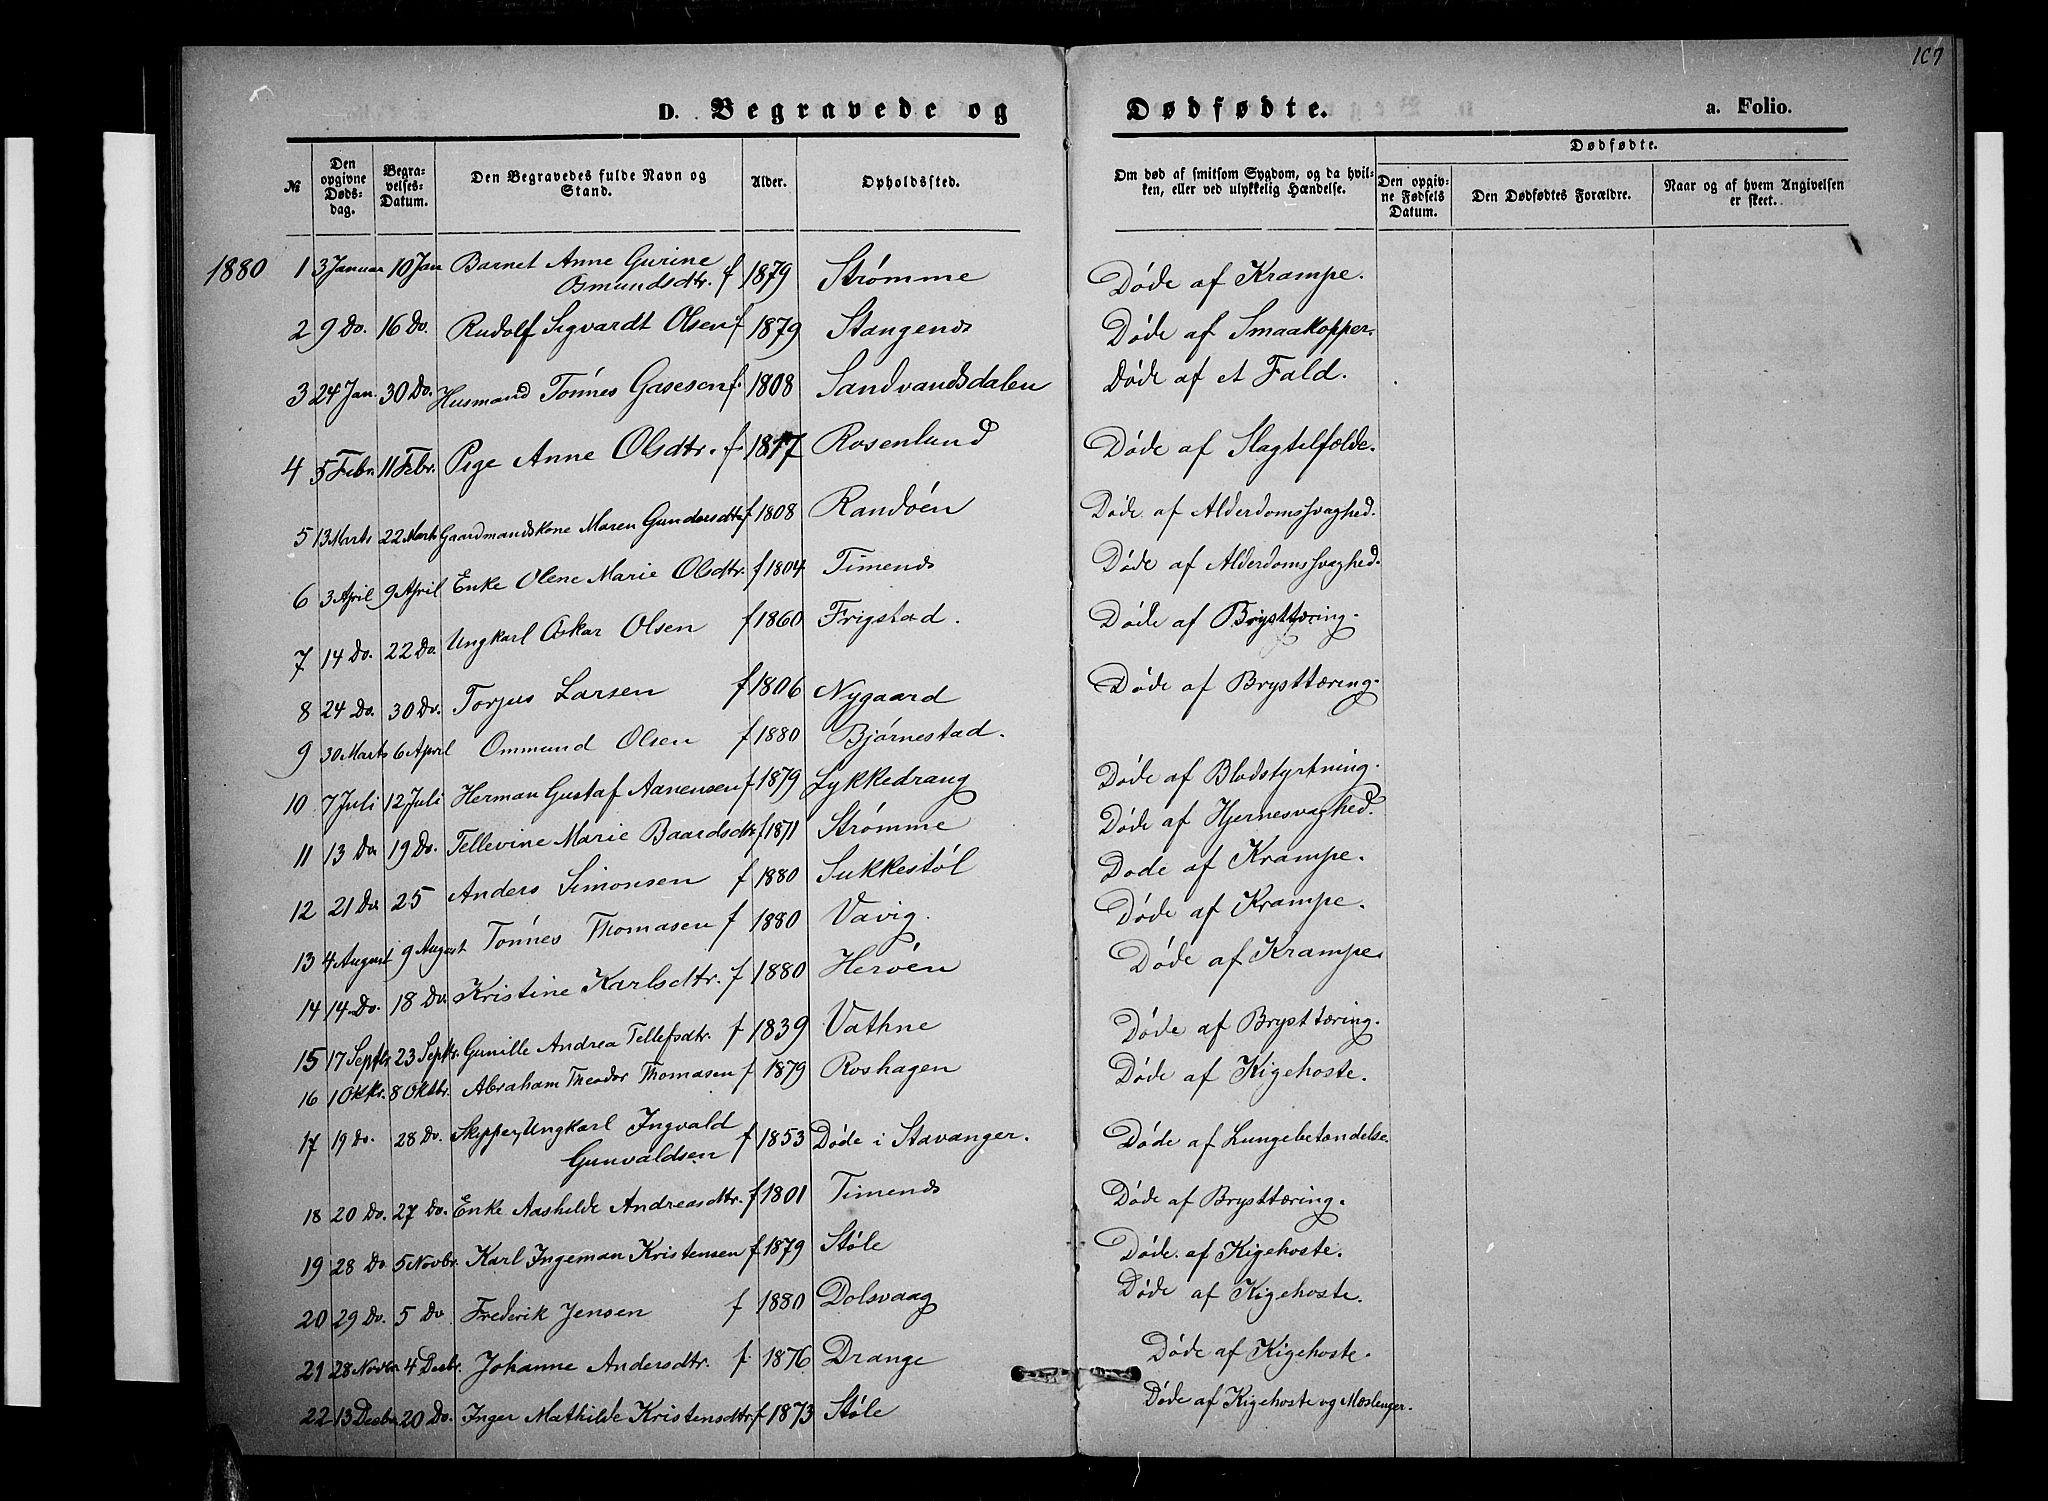 107
D. Begravede og Dødfødte. a. Folio.
Dødfødte.
№ Den opgivne Dødsdag. Begravelses-Datum. Den Begravedes fulde Navn og Stand. Alder. Opholdssted. Om død af smitsom Sygdom, og da hvilken, eller ved ulykkelig Hændelse. Den opgivne Fødsels Datum. Den Dødfødtes Forældre. Naar og af hvem Angivelsen er skeet.
1880 1 3 Januar 10 Jan Barnet Anne Gurine
Osmundsdtr. f 1879 Strømme Døde af Krampe.
2 9 Do. 16 Do. Rudolf Sigvardt Olsen f 1879 Stangenes Døde af Smaakopper.
3 24 Jan. 30 Do. Husmand Tønnes Gasesen f. 1808 Sandvandsdalen Døde af et Fald.
4 5 Febr. 11 Febr. Pige Anne Olsdtr. f 1817 Rosenlund Døde af Slagtilfælde.
5 13 Marts 22 Marts Gaardmandskone Maren Gundersdtr f 1808 Randøen Døde af Alderdomssvaghed.
6 3 April 9 April Enke Olene Marie Olsdtr. f 1804 Timenes Døde af Alderdomssvaghed.
7 14 Do. 22 Do. Ungkarl Oskar Olsen f 1860 Frigstad. Døde af Brysttæring.
8 24 Do. 30 Do. Torjus Larsen f 1806 Nygaard Døde af Brysttæring.
9 30 Marts 6 April Ommund Olsen f 1880 Bjørnestad.
10 7 Juli 12 Juli Herman Gustaf Aanensen f 1879 Lykkedrang Døde af Blodstyrtning.
11 13 Do 19 Do. Tellevine Marie Baardsdtr f 1871 Strømme Døde af Hjernesvaghed.
12 21 Do. 25 Anders Simonsen f 1880 Sukkestøl Døde af Krampe.
13 4 August 9 August Tønnes Thomasen f 1880 Vavig. Døde af Krampe.
14 14 Do. 18 Do. Kristine Karlsdtr. f 1880 Herøen Døde af Krampe.
15 17 Septbr 23 Septbr. Gunille Andrea Tellefsdtr. f 1839 Vathne Døde af Brysttæring.
16 1 Oktbr. 8 Oktbr. Abraham Theodor Thomasen f 1879 Roshagen Døde af Kigehoste.
17 19 Do. 28 Do. Skipper, Ungkarl Ingvald
Gunvaldsen f 1853 Døde i Stavanger. Døde af Lungebetændelse
18 20 Do. 27 Do. Enke Aashilde Andreasdtr. f 1801 Timenes Døde af Brysttæring.
19 28 Do 5 Novbr. Karl Ingeman Kristensen f 1879 Støle Døde af Kigehoste.
20 29 Do. 5 Do Frederik Jensen f 1880 Dolsvaag Døde af Kigehoste.
21 28 Novbr. 4 Decbr. Johanne Andersdtr. f 1876 Drange Døde af Kigehoste.
22 13 Decbr 20 Do. Inger Mathilde Kristensdtr f 1873 Støle Døde af Kigehoste og Mæslinger.